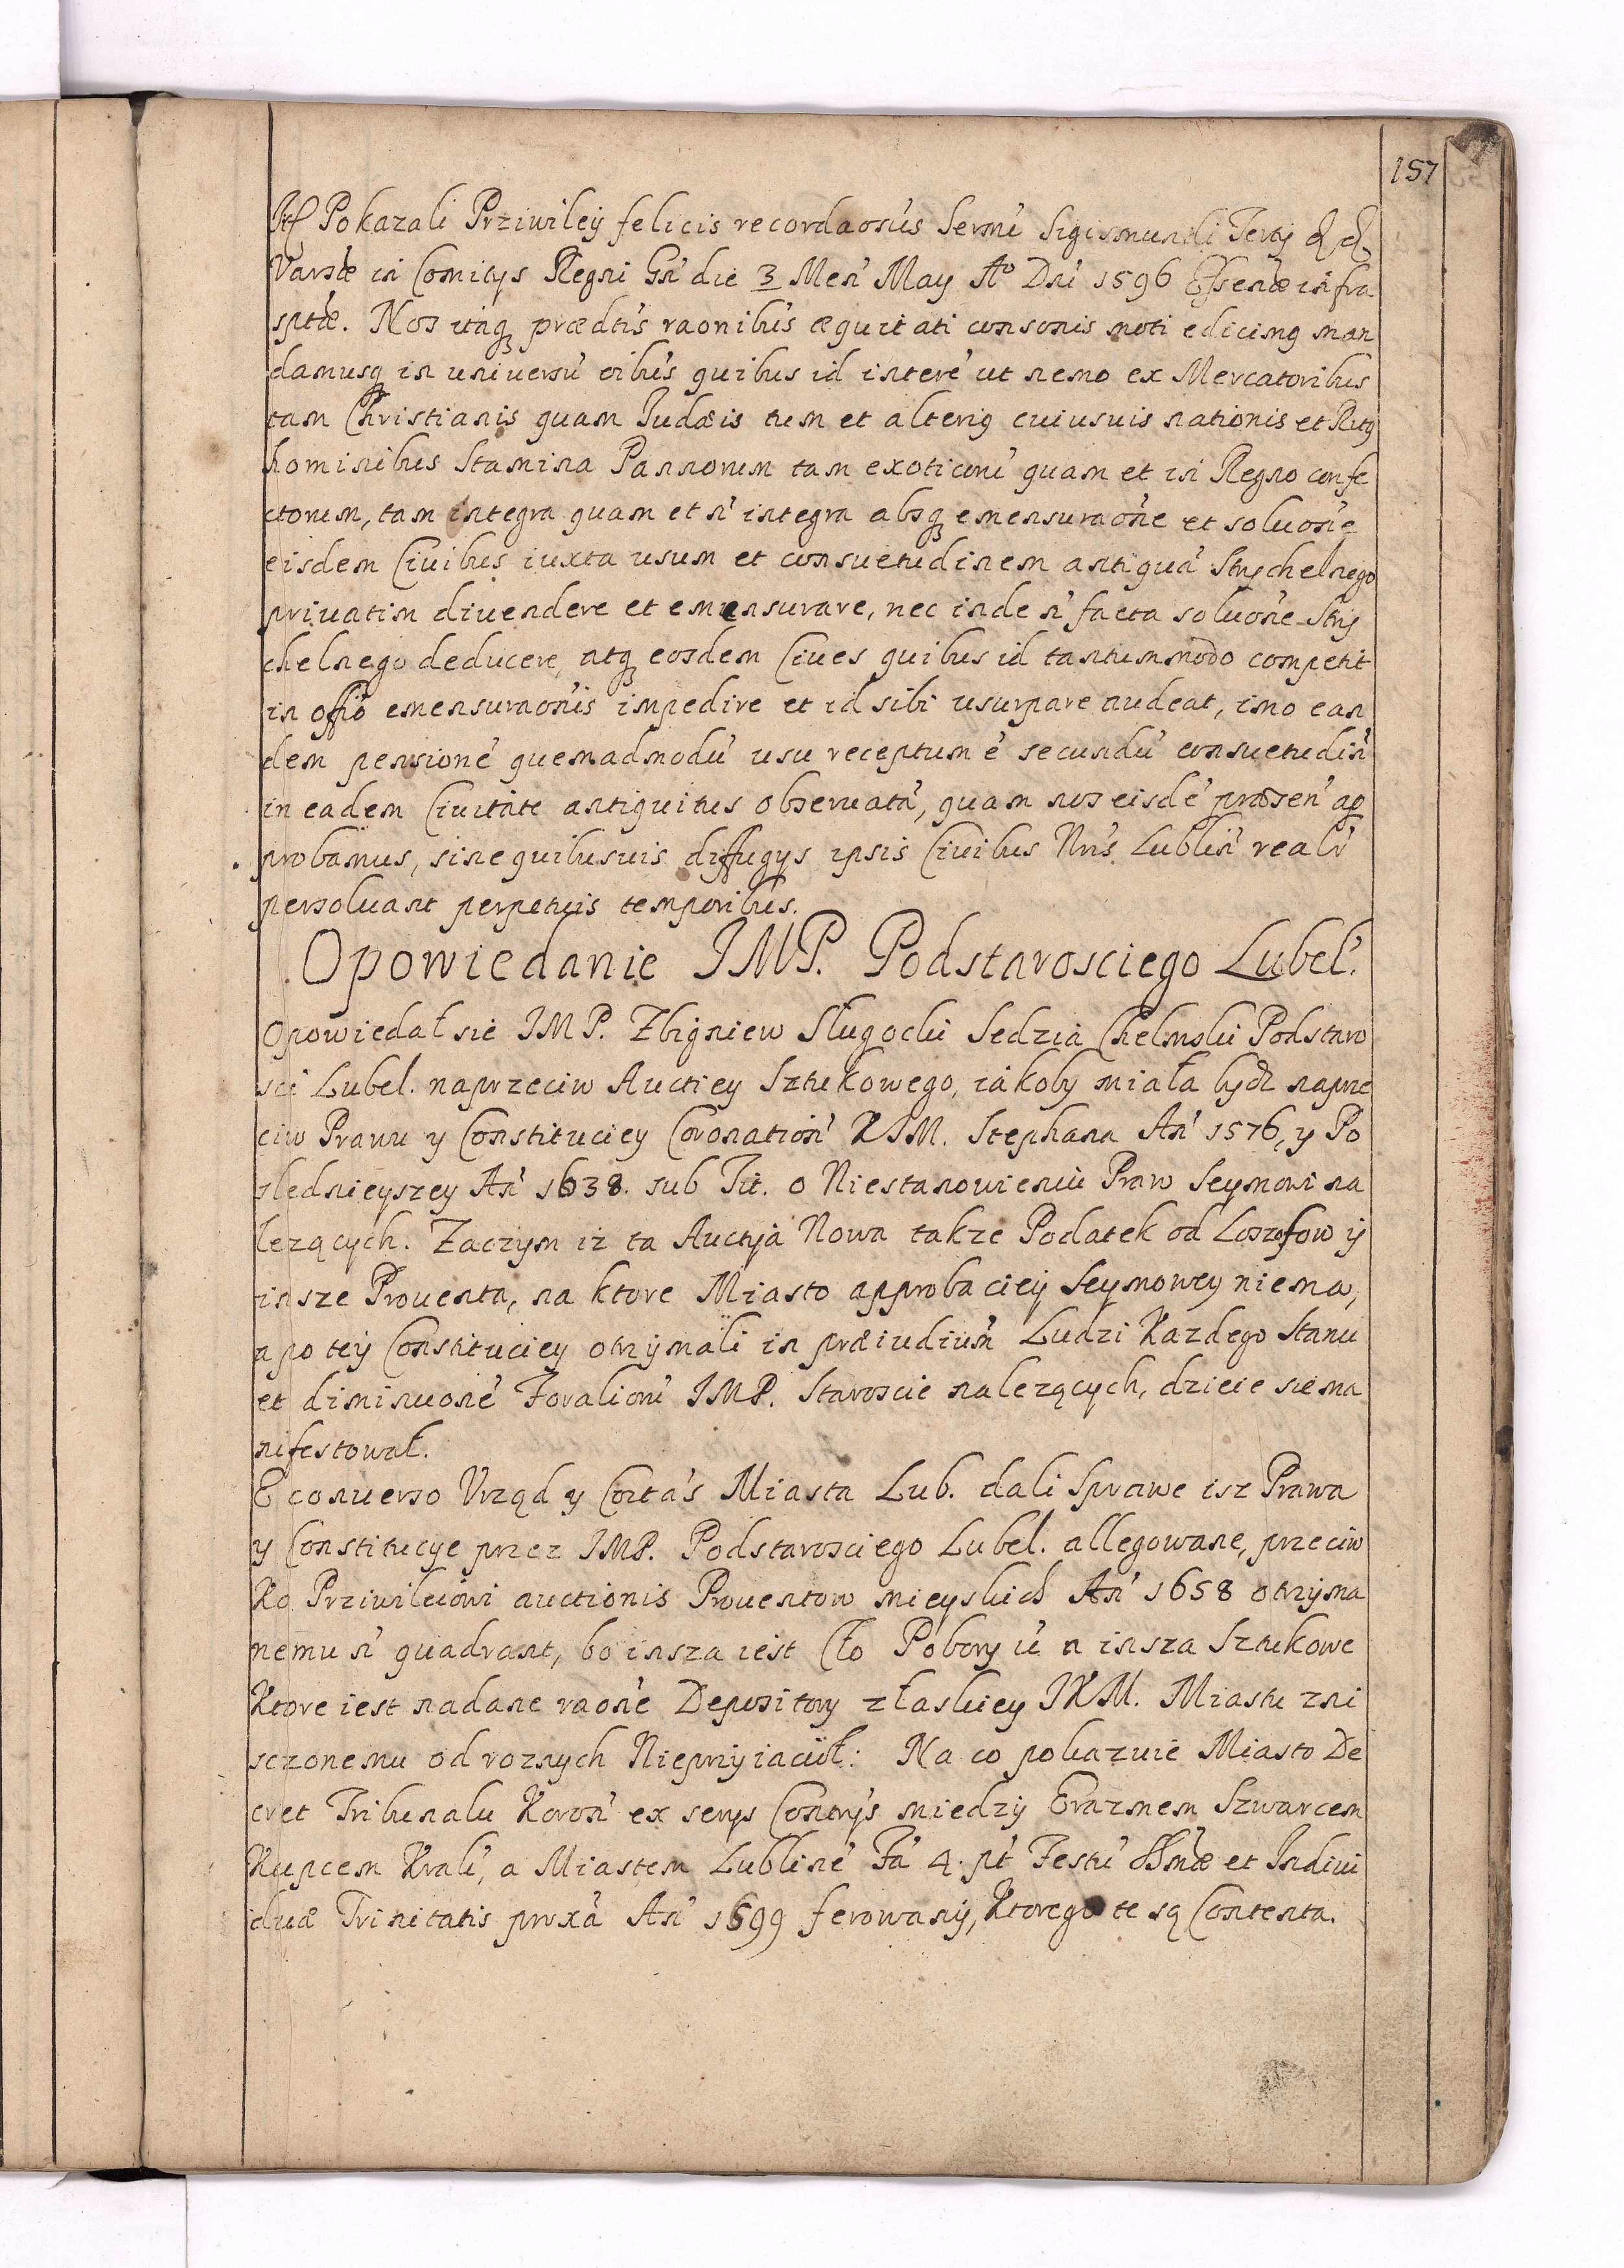 157
Pokazali Prziwiley felicis recordaonis Sermi Sigismundi Tertij & &
Varsæ in Comitys Regni Gn' die 3 Men' May Ao Dni 1596 infra
sptæ. Nos itaq prædtis raonibus æquitati consonis moti edicimq man
damusq in universu' oibus quibus id intere' ut nemo ex Mercatoribus
tam Christianis quam Judæis tum et alteriq cuiusuis nationis et Ritq
hominibus Stamina Pannorum tam exoticoru' quam et in Regno confe
ctorum, tam integra quam et n' integra absq emensuraone et soluone
eisdem Ciuibus iuxta usum et consuetudinem antiqua' Strychelnego
priuatim diuendere et emensurare, nec inde n' facta soluone Stry
chelnego deducere, atq eosdem Ciues quibus id tantummodo competit
in offo emensuraonis impedire et id sibi usurpare audeat, imo ean
dem pensione' quemadmodu' usu receptum e' secundu' consuetudin'
in eadem Ciuitate antiquitus obseruata', quam nos eisde' præsen' ap
probamus, sine quibusuis diffugys ipsis Ciuibus Nris Lublin' realr'
persoluant perpetuis temporibus.
Opowiedanie JMP. Podstarosciego Lubel.
Opowiedał sie JMP. Zbigniew Sługocki Sedzia Chelmski Podstaro
sci Lubel. naprzeciw Auctiey Sztukowego, iakoby miała bydz naprze
ciw Prawu y Constituciey Coronation' KJM. Stephana An' 1576, y Po
slednieyszey An' 1638. sub Tit. o Niestanowieniu Praw Seymowi na
lezących. Zaczym iz ta Auctya Nowa takze Podatek od Loszofow y
insze Prouenta, na ktore Miasto approbaciey Seymowey niema,
a po tey Constituciey otrzymali in præiudium Ludzi Kazdego Stanu
et diminuone' Foralioru' JMP. Staroscie nalezących, dzieie sie ma
nifestował.
E conuerso Vrząd y Coitas Miasta Lub. dali Sprawe isz Prawa
y Constitucye przez JMP. Podstarosciego Lubel. allegowane, przeciw
Ko Prziwileiowi auctionis Prouentow mieyskich An' 1658 otrzyma
nemu n' quadrant, bo insza iest Cło Pobory a insza Sztukowe
Ktore iest nadane raone Depository z łaskiey JKM. Miastu zni
sczonemu od roznych Nieprzyiacioł: Na co pokazuie Miasto De
cret Tribunalu Koron' ex serys Contrys miedzy Erazmem Szwarcem
Kupcem Krali', a Miastem Lubline' Fa' 4. pt Festu' SSmæ et Indiui
duæ Trinitatis proxa' An' 1699 ferowany, Ktorego te są Contenta.